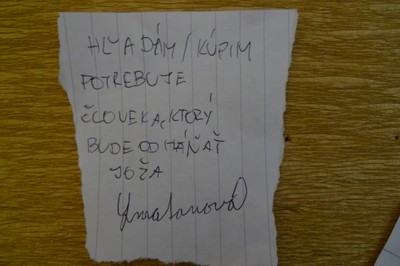 HĽADÁM / KÚPIM
POTREBUJE
ČLOVEKA, KTORÝ
BUDE ODHÁŇAŤ
JOŽA